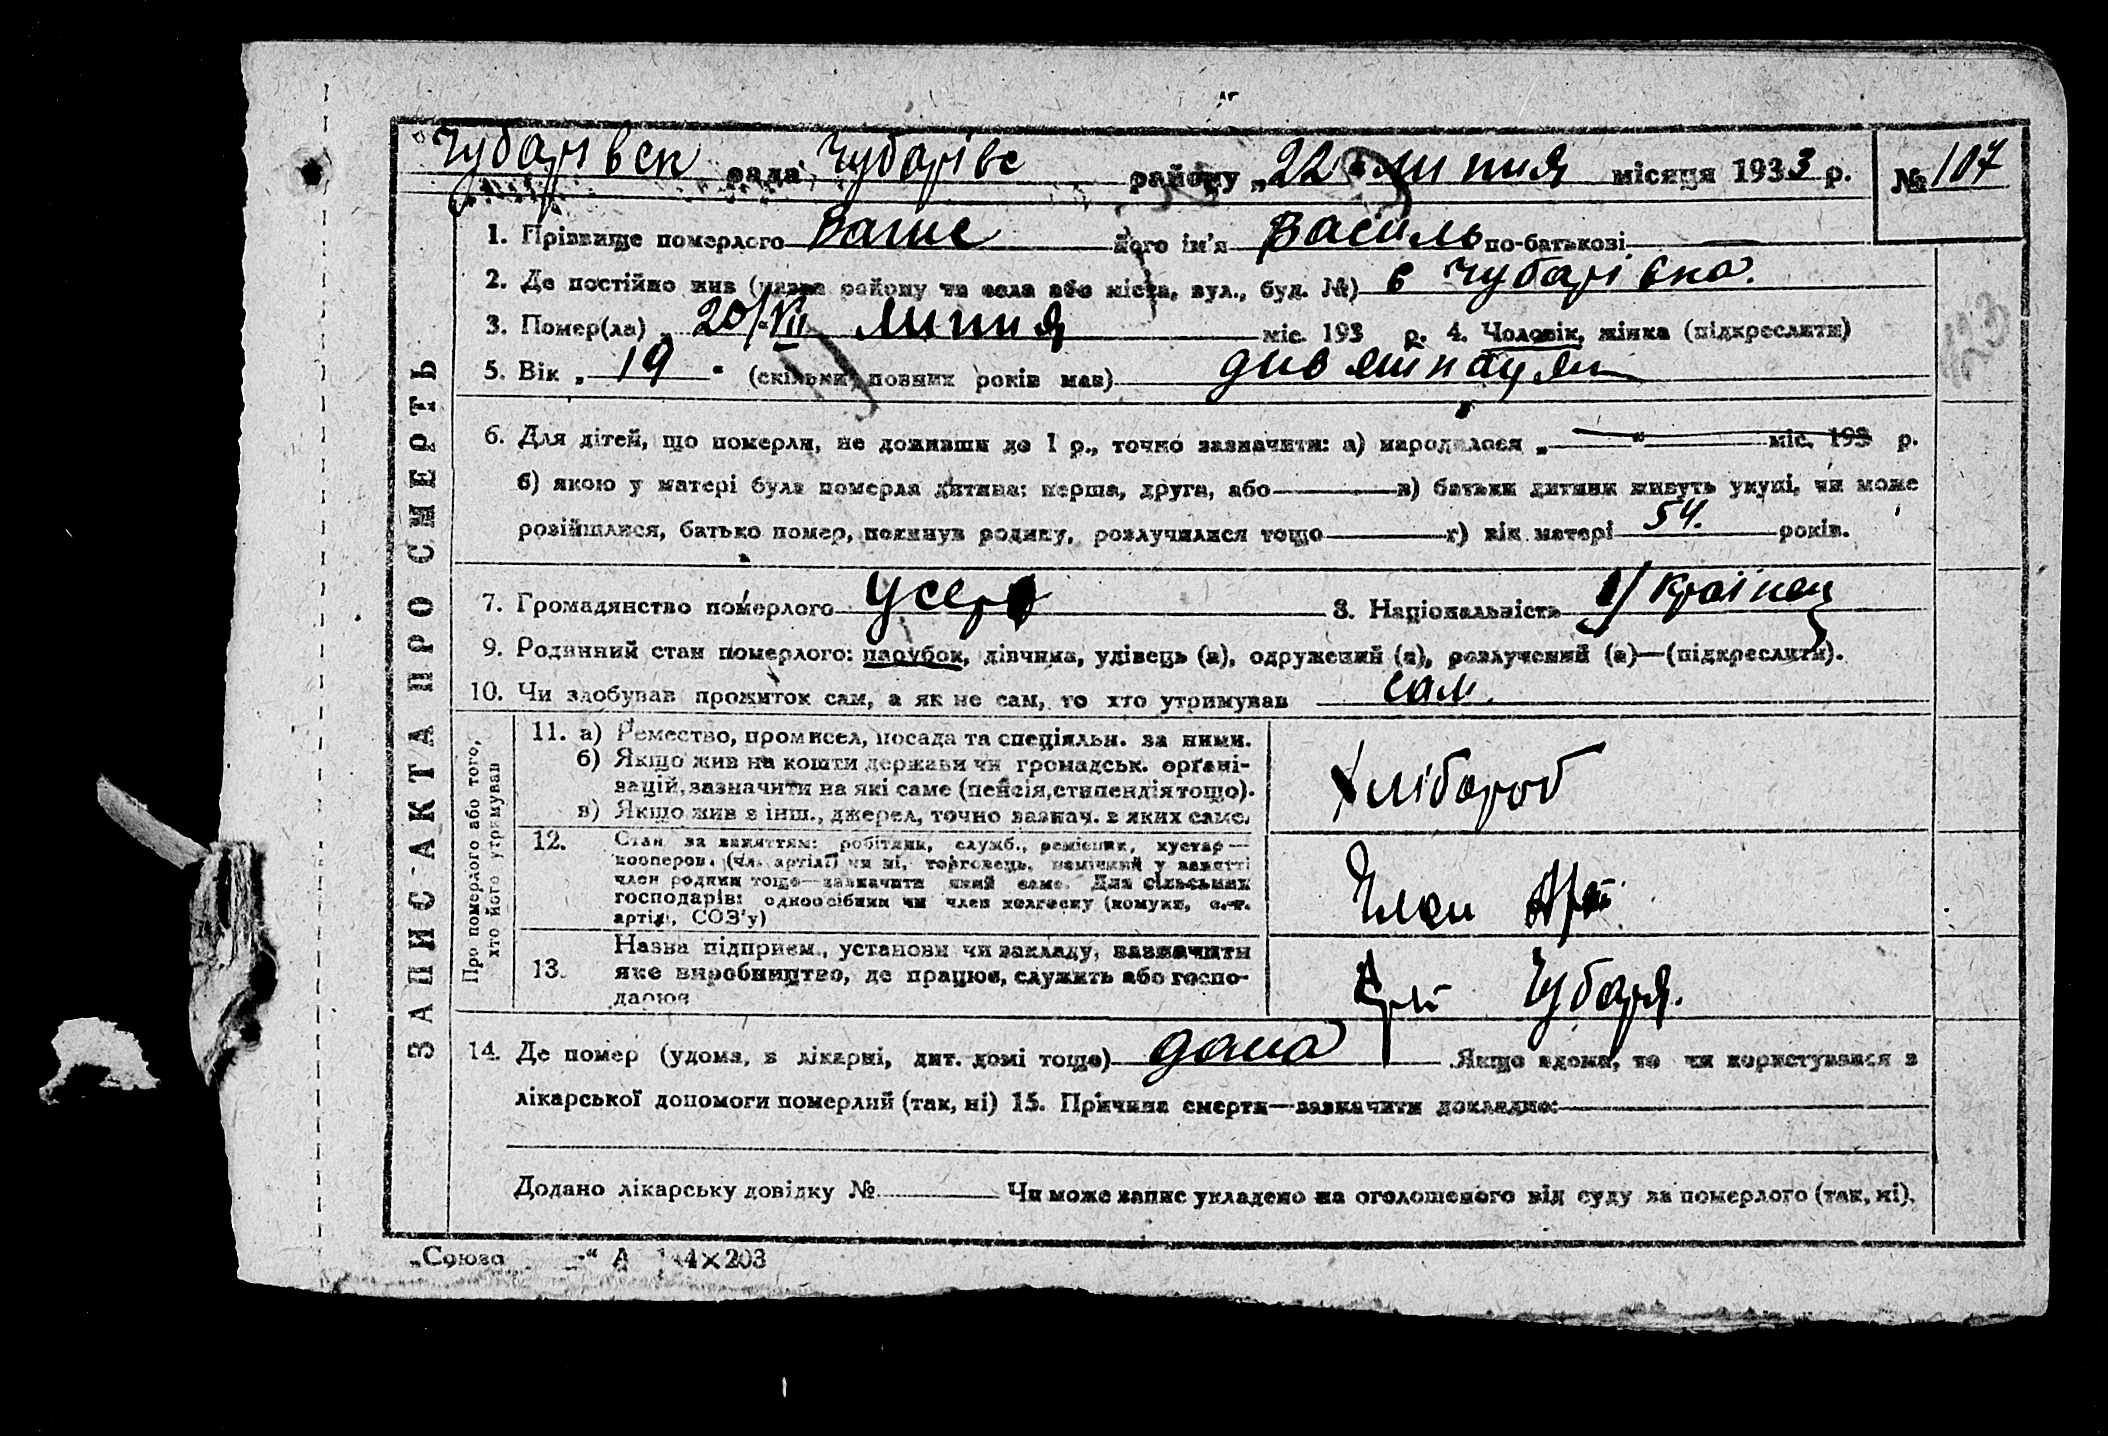 Чубарівськ рада Чубарівс району „22" липня місяця 1933 р. № 107
1. Прізвище померлого Ваше його ім'я Василь по-батькові —
2. Де постійно жив (назва району та села або міста, вул., буд. №) с Чубарівка.
3. Помер(ла) „20/VII липня міс. 193 р. 4. Чоловік, жінка (підкреслити)
5. Вік „19" (скільки повних років мав)
6. Для дітей, що померли, не доживши до 1 р., точно зазначити: а) народилося „ " міс. 193 р.
б) якою у матері була померла дитина: перша, друга, або в) батьки дитини живуть укупі, чи може
розійшлися, батько помер, покинув родину, розлучилися тощо г) вік матері 54. років.
7. Громадянство померлого 8. Національність Українец
9. Родинний стан померлого: парубок, дівчина, удівець (а), одружений (а), розлучений (а)—(підкреслити).
10. Чи здобував прожиток сам, а як не сам, то хто утримував сам.
ЗАПИС АКТА ПРО СМЕРТЬ
Про померлого або того,
хто його утримував
11. а) Ремество, промисел, посада та спеціяльн. за ними.
б) Якщо жив на кошти держави чи громадськ. орґані-
зацій, зазначити на які саме (пенсія, стипендія тощо).
в) Якщо жив з інш., джерел, точно зазнач. з яких саме.
Хлібороб
12. Стан за заняттям: робітник, служб., ремісник, кустар—
кооперов. (чл. артілі) чи ні, торговець, помічний у занятті
член родини тощо—зазначити який саме. Для сільських
господарів: одноосібник чи член колгоспу (комуни, с.-г.
артілі, СОЗ'у)
Член Арт.
13. Назва підприєм., установи чи закладу, зазначити
яке виробництво, де працює, служить або госпо-
дарює
Чубаря.
14. Де помер (удома, в лікарні, дит. домі тощо) дома Якщо вдома, то чи користувався з
лікарської допомоги померлий (так, ні) 15. Причина смерти—зазначити докладно:
Додано лікарську довідку № Чи може запис укладено на оголошеного від суду за померлого (так, ні).
„Союз А 144×203